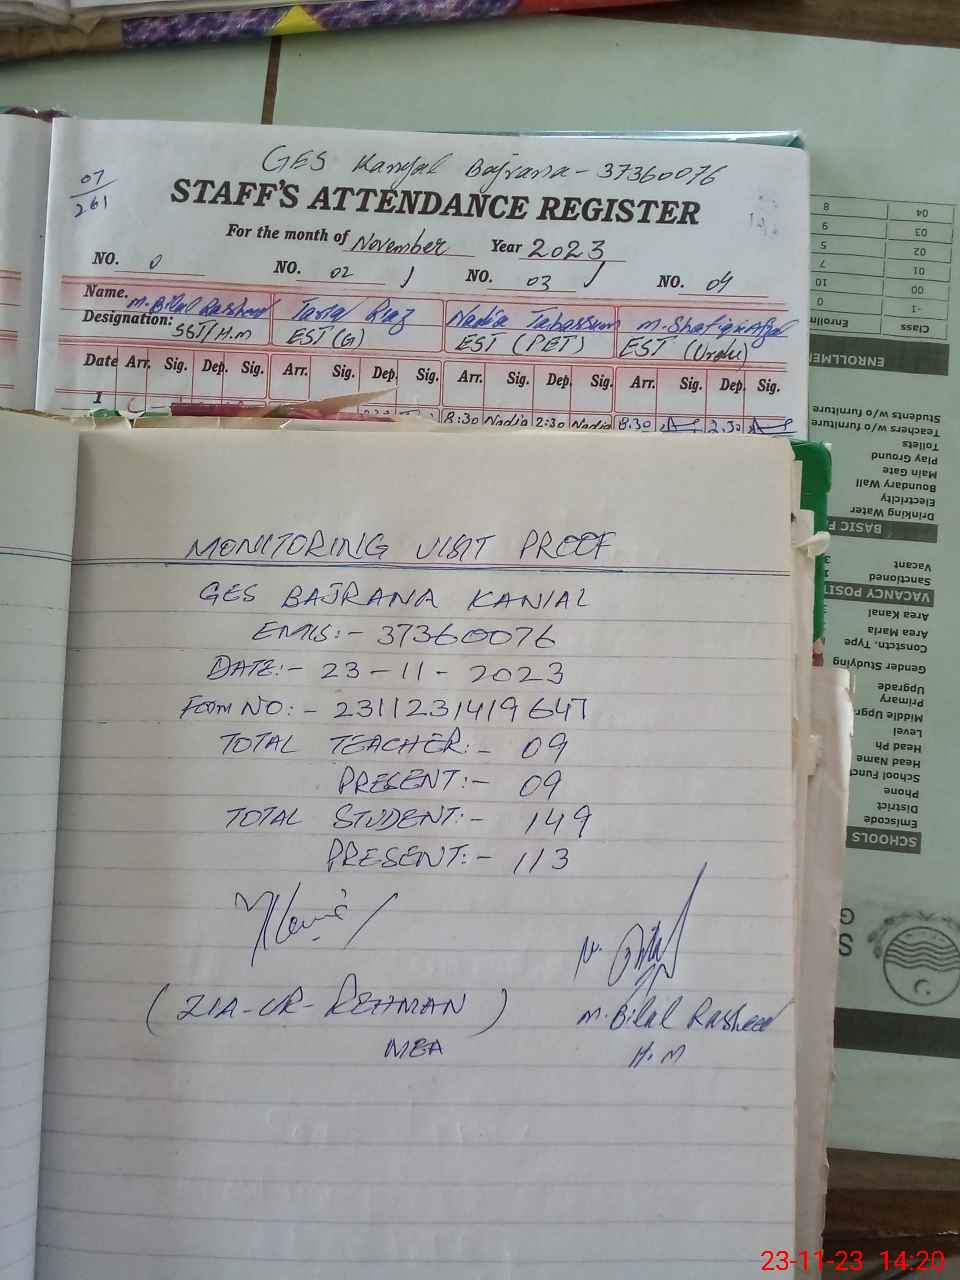 GES Kanyal Bajrana - 37360076
07
261
STAFF'S ATTENDANCE REGISTER
For the month of November Year 2023
NO. 0 NO. 02 NO. 03 NO. 04
Name. M. Bilal Rasheed Tariq Riaz Nadia Tabassum M. Shafique Afzal
Designation: SST/H.M EST (G) EST (PET) EST (Urdu)
Date Arr. Sig. Dep. Sig. Arr. Sig. Dep. Sig. Arr. Sig. Dep. Sig. Arr. Sig. Dep. Sig.
1 8:30 Nadia 2:30 Nadia 8.30 2.30
MONITORING VISIT PROOF
GES BAJRANA KANIAL
EMIS:- 37360076
DATE:- 23-11-2023
Form NO:- 231123141964
TOTAL TEACHER:- 09
PRESENT:- 09
TOTAL STUDENT:- 149
PRESENT:- 113
(ZIA-UR-REHMAN)
MEA
M. Bilal Rasheed
H.M
SCHOOLS
Emiscode
District
Phone
School Funct
Head Name
Head Ph
Level
Middle Upgr
Primary
Upgrade
Gender Studying
Constctn. Type.
Area Marla
Area Kanal
VACANCY POSIT
Sanctioned
Vacant
BASIC F
Drinking Water
Electricity
Boundary Wall
Main Gate
Play Ground
Toilets
Teachers w/o furniture
Students w/o furniture
ENROLLMEN
Class Enrollm
-1 0
00 10
01 7
02 5
03 9
04 8
23-11-23 14:20